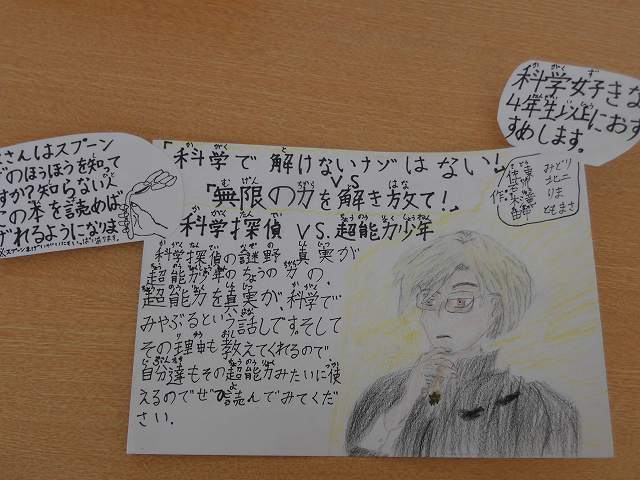 科学好きな
4年生以上におす
すめします。
さんはスプーン
のほうほうを知って
すか?知らない人
の本を読めば
げれるようになりま
「科学で解けないナゾはない!」
VS
「無限の力を解き放て!」
科学探偵 VS.超能力少年
科学探偵の謎野 真実が
超能力少年のちょうの力の、
超能力を真実が、科学で
みやぶるという話しです。そして
その理由も教えてくれるので、
自分達もその超能力みたいに使
えるのでぜひ読んでみてくだ
さい.
作:
みどり
北二
りま
ともまさ